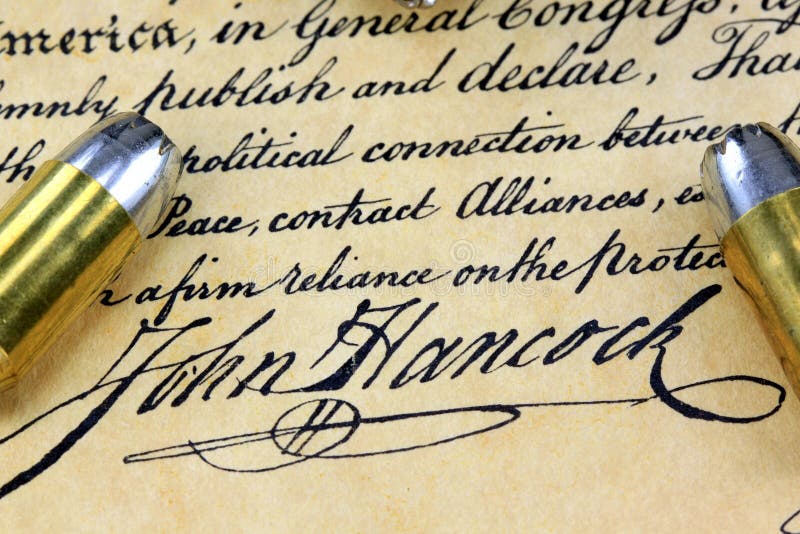 America, in General Congress,
emnly publish and declare, Tha
th political connection between
Peace, contract Alliances, es
a firm reliance on the Protec
John Hancock